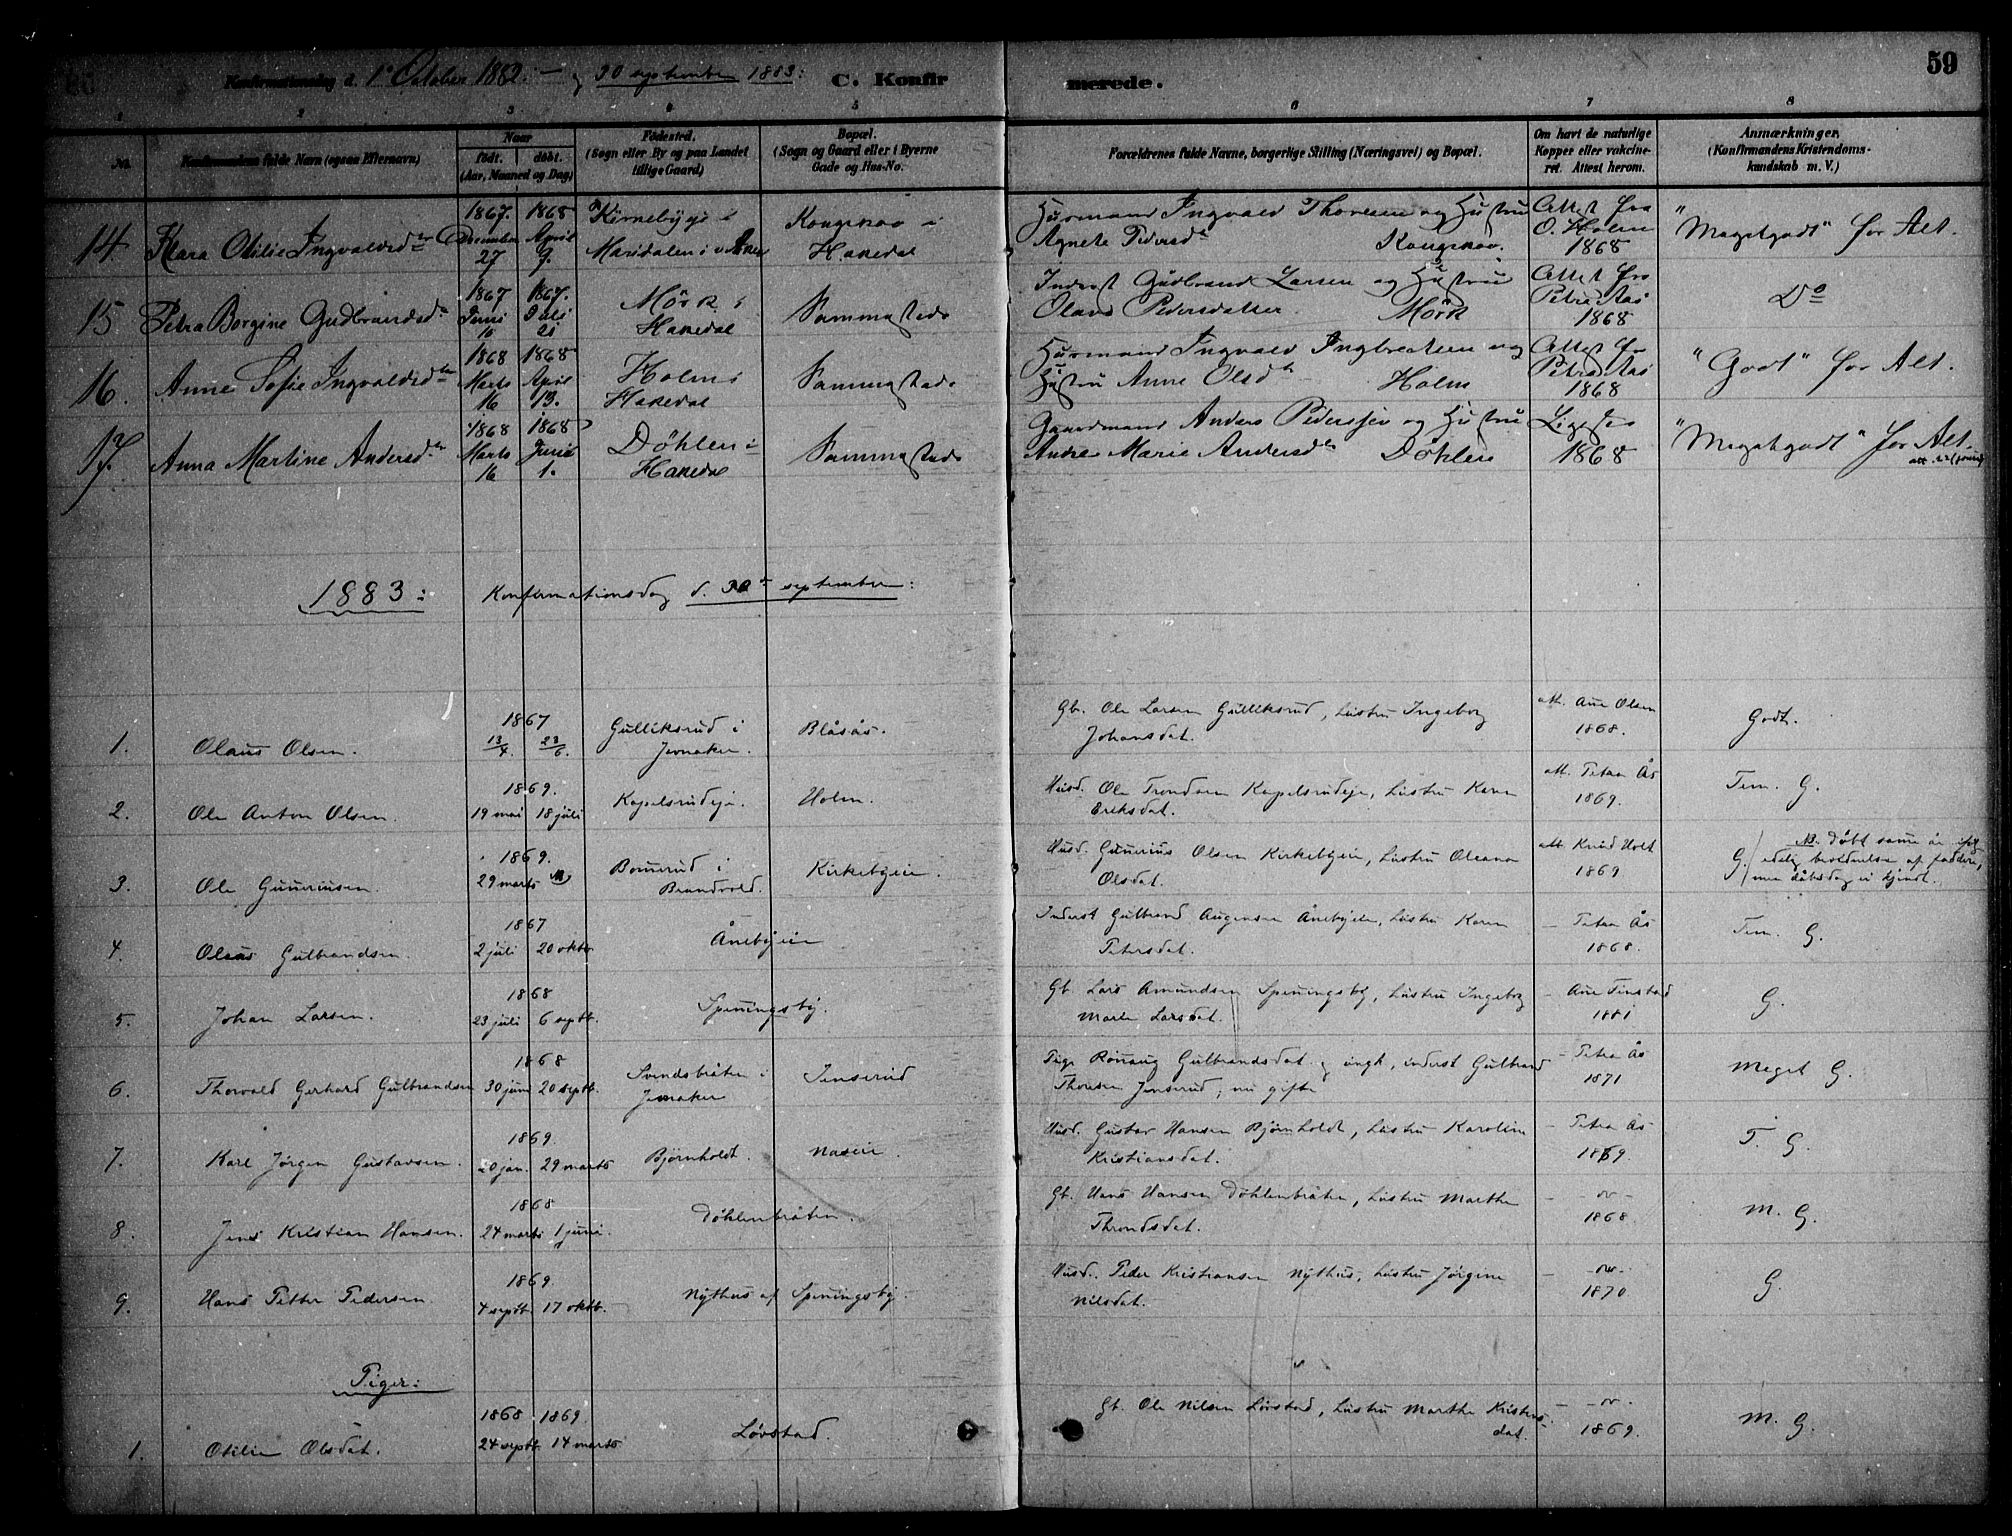 Konfirmationsdag d. 1e October 1882. — og 30 september 1883: C. Konfirmerede. 59
1 2 3 4 5 6 7 8
No. Konfirmandens fulde Navn (ogsaa Efternavn) Naar født. døbt. (Aar, Maaned og Dag) Fødested. (Sogn eller By og paa Landet tillige Gaard) Bopæl. (Sogn og Gaard eller i Byerne Gade og Hus-No. Forældrenes fulde Navne, borgerlige Stilling (Næringsvei) og Bopæl. Om havt de naturlige Kopper eller vakcineret. Attest herom. Anmærkninger, (Konfirmandens Kristendomskundskab m. V.)
14. Klara Otilie Ingvaldsdtr 1867. December 27 1868 April 9. Maridalen i v. Aker Kongskov i Hakedal Husmand Ingvald Thoresen og Hustru Agnete Pedersdtr Kongskov. Attest fra O. Holm 1868 "Megetgodt" for Alt.
15 Petra Borgine Gudbrandsdtr 1867 Juni 10 1867. Juli 21 Mörk i Hakedal Sammasteds Inderst Gudbrand Larsen og Hustru Oland Pedersdatter Mörk Attest fra Petra Aas 1868 Do
16. Anne Sofie Ingvaldsdtr 1868 Marts 16 1868 April 13. Holm i Hakedal Sammasteds Husmand Ingvald Ingbretsen og Hustru Anne Olsdtr Holm Attest fra Petra Aas 1868 "Godt" for Alt.
17. Anna Martine Andersdtr 1868 Marts 16 1868 Juni 1. Döhlen i Hakedal Sammasteds Gaardmand Anders Pederssen og Hustru Andrea Marie Andersdtr Döhlen Ligesaa 1868 "Megetgodt" for Alt.
1883: Konfirmationsdag d. 30te september:
1. Olaus Olsen. 1867 13/4. 23/6. Gulliksrud i Jevnaker. Blåsås. Gb. Ole Larsen Gulliksrud, hustru Ingeborg Johansdat. att. Ane Olsen 1868. Godt.
2. Ole Anton Olsen. 1869. 19 mai 18 juli Kapelsrudeje. Holm. Husd. Ole Trondsen Kapelsrudeje, hustru Karen Eriksdat. att. Petra Ås 1869. Tem. G.
3. Ole Gunerius​en. 1869. 29 marts Bonnerud i Brandvold. Kirkebyeie. Husd. Gunerius Olsen Kirkebyeie, hustru Oleana Olsdat. att. Knud Holt 1869 G. NB. døbt samme år ifølge edelig bevidnelse af fadderne, men dåbsdag ei kjendt.
4. Olaus Gulbrandsen. 1867 2 juli 20 oktb. Ånebyeie Inderst Gulbrand Augensen Ånebyeie, hustru Karen Petersdat. — Petra Ås 1868. Tem. G.
5. Johan Larsen. 1868 23 juli 6 septb. Spenningsby. Gb. Lars Amundsen Spenningsby, hustru Ingeborg Marie Larsdat. — Ane Tinstad 1881 G.
6. Thorvald Gerhard Gulbrandsen 1868 30 juni 20 septb. Svendsbråten i Jevnaker Jenserud Pige Rønnaug Gulbrandsdat. og ungk., inderst Gulbrand Thoresen Jenserud; nu gifte — Petra Ås 1871 Meget G.
7. Karl Jørgen Gustavsen. 1869. 20 jan. 29 marts Bjørnholdt. Naseie. Husd. Gustav Hansen Bjørnholdt, hustru Karoline Kristiansdat. — Petra Ås 1869. T. G.
8. Jens Kristian Hansen. 1868 24 marts 1 juni. Døhlenbråten. Gb. Hans Hansen Døhlenbråten, hustru Marthe Throndsdat. — 1868. M. G.
9. Hans Petter Pedersen. 1869. 4 septb. 17 oktb. Nythus af Spenningsby. Husd. Peder Kristiansen Nythus, hustru Jørgine Nilsdat. — 1870. G.
Piger:
1. Otilie Olsdat. 1868 24 septb. 1869. 14 marts Løvstad. Gb. Ole Nilsen Løvstad, hustru Marthe Kristensdat. — 1869. M. G.